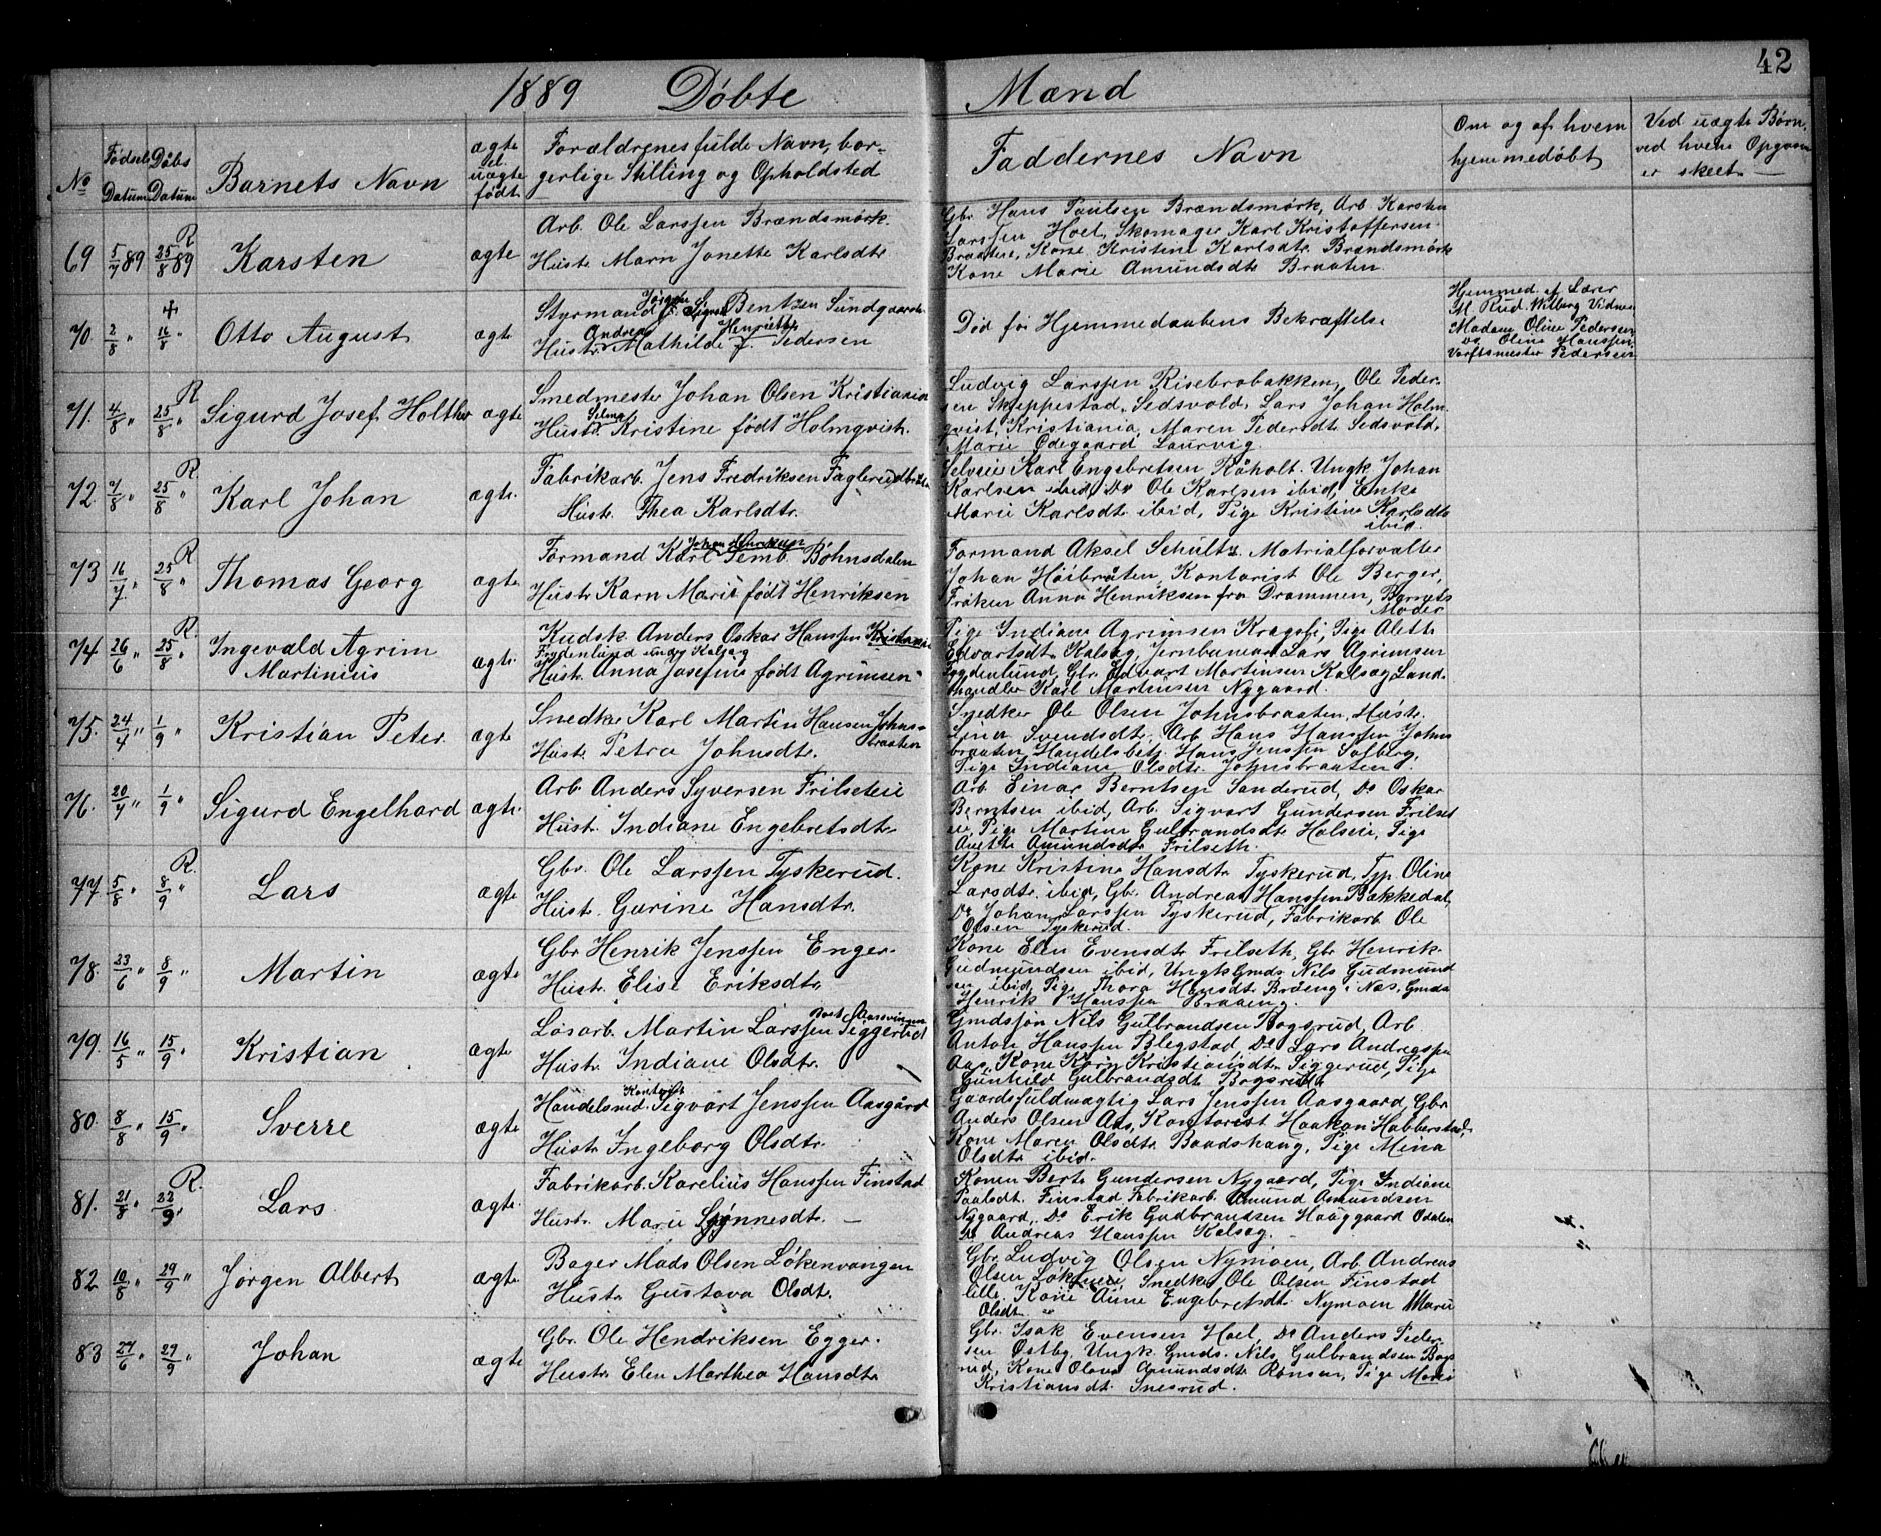 42
1889 Døbte Mænd
No
Fødsels Datum
Døbs Datum
Barnets Navn
ægte el. uægte født
Forældrenes fulde Navn, bor-
gerlige Stilling og Opholdsted
Faddernes Navn
Om og af hvem
hjemmedøbt
Ved uægte Børn,
ved hvem Opgaven
er skeet
69 5/7 89 25/8 89 R Karsten ægte
Arb. Ole Larssen Brændsmørk.
Hustr. Marn Jonette Karlsdtr
Gbr Hans Paulsen Brændsmørk, Arb Karsten
Larssen Hoel, Skomager Karl Kristoffersen
Braaten, Kone Kristine Karlsdtr Brændsmørk
Kone Marie Amundsdtr Braaten.
70. 2/8 " 16/8 " + Otto August ægte
Styrmand Jørgen Bentzen Sundgaarden
Andrea Henriette
Hustr. Mathilde f. Pedersen
Død før Hjemmedaabens Bekræftelse
Hjemmed. af Lærer
M. Rud. Wiborg Vidner
Madam Oline Pedersen
og Oline Hanssen
Værftsmester Pedersen
71. 4/8 " 25/8 " R Sigurd Josef Holther ægte
Smedmester Johan Olsen Kristiania
Selma
Hustr. Kristine født Holmqvist.
Ludvig Larssen Risebrobakken, Ole Peder-
sen Skeppestad, Sedsvold, Lars Johan Holm-
qvist, Kristiania, Maren Pedersdtr Sedsvold,
Marie Ødegaard Laurvig.
72. 7/8 " 25/8 " R. Karl Johan ægte.
Fabrikarb. Jens Fredriksen Faglerud
Hustr. Thea Karlsdtr.
Selveier Karl Engebretsen Råholt. Ungk. Johan
Karlsen ibid, Do Ole Karlsen ibid, Enke
Marie Karlsdtr ibid, Pige Kristine Karlsdtr
ibid.
73 16/7 " 25/8 " R Thomas Georg ægte
Johan Henriksen
Formand Karl Temb Bøhnsdalen
Hustr Karn Marie født Henriksen
Formand Aksel Schultz. Matrialforvalter
Johan Höibråten, Kontorist Ole Berger,
Frøken Anna Henriksen fra Drammen, Barnets
Moder
74. 26/6 " 25/8 " R. Ingevald Agrim
Martinius ægte.
Kudsk Anders Oskar Hanssen Kristiania
Frydenlund under Kalsæg
Hustr. Anna Josefine født Agrimsen
Pige Indiane Agrimsen Kragsti, Pige Aleth
Edvartsdtr Kalsæg, Jernbanearb Lars Agrimsen
Frydenlund, Gbr. Edvart Martinsen Kalsæg Land-
handler Karl Martinsen Nygaard.
75. 24/4 " 1/9 " Kristian Peter. ægte
Snedker Karl Martin Hansen Johns-
braaten
Hustr. Petra Johnsdtr.
Snedker Ole Olsen Johnsbraaten, Hustr.
Lina Svendsdtr. Arb Hans Hanssen Johns
braaten Handelsbetj. Hans Jenssen Solberg,
Pige Indiane Olsdtr Johnsbraaten.
76. 20/7 " 1/9 " Sigurd Engelhard ægte.
Arb. Anders Syversen Frilseteie
Hustr. Indiane Engebretsdtr
Arb. Einar Berntsen Sanderud, Do Oskar
Berntsen ibid, Arb. Sigvart Gundersen Frilset
eie, Pige Martine Gulbrandsdtr Holseie, Pige
Anette Amundsdtr Frilseth.
77. 5/8 " 8/9 " R. Lars ægte
Gbr. Ole Larssen Tyskerud.
Hustr. Gurine Hansdtr.
Kone Kristine Hansdtr Tyskerud, Typ. Oline
Larsdtr. ibid, Gbr. Andreas Hanssen Bakkedal,
Do Johan Larssen Tyskerud, Fabrikarb. Ole
Olsen Tyskerud.
78. 23/6 " 8/9 " Martin ægte
Gbr Henrik Jenssen Enger.
Hustr. Elise Eriksdtr.
Kone Elen Evensdtr Frilseth, Gbr. Henrik
Gudmundsen ibid, Ungk Gmds. Nils Gudmund
sen ibid, Pige Thora Hansdtr. Bråeng i Næs, Gmds
Henrik Hanssen Braaeng.
79. 16/5 " 15/9 " Kristian ægte
Løsarb. Martin Larssen Siggerud
Hustr. Indiane Olsdtr.
Gmdssøn Nils Gulbrandsen Bogsrud, Arb.
Anton Hanssen Blegstad Do Lars Andreassen
Aas, Kone Karn Kristiansdtr Siggerud, Pige
Gunhild Gulbrandsdtr Bogsrud.
80. 8/8 " 15/9 " Sverre ægte
Kontorist
Handelsmd. Sigvart Jenssen Aasgård
Hustr. Ingeborg Olsdtr.
Gaardsfuldmægtig Lars Jenssen Aasgaard, Gbr.
Anders Olsen Aas, Kontorist Haakon Habberstad,
Kone Maren Olsdtr. Baadshaug, Pige Mina
Olsdtr ibid.
81. 21/8 " 22/9 " R. Lars ægte.
Fabrikarb. Karelius Hanssen Finstad
Hustr. Marie
Konen Berte Gundersen Nygaard, Pige Indiane
Paalsdtr. Finstad Fabrikarb. Amund Amundsen
Nygaard, Do Erik Gudbrandsen Haaggaard Odalen
Do Andreas Hanssen Kalsæg.
82. 10/8 " 29/9 " Jørgen Albert ægte
Bager Mads Olsen Løkenvangen
Hustr Gustava Olsdtr.
Gbr. Ludvig Olsen Nymoen, Arb. Andreas
Olsen Løkeneie, Snedker Ole Olsen Finstad
lille, Kone Anne Engebretsdtr. Nymoen Marie
Olsdtr. "
83 24/6 " 29/9 " Johan ægte
Gbr. Ole Hendriksen Egger.
Hustr. Elen Marthea Hansdtr
Gbr. Isak Evensen Hoel, Do Anders Peder-
sen Østby, Ungk. Gmds. Nils Gulbrandsen Bogs
rud, Kone Olava Amundsdtr Rønsen, Pige Marie
Kristiansdtr. Snesrud.